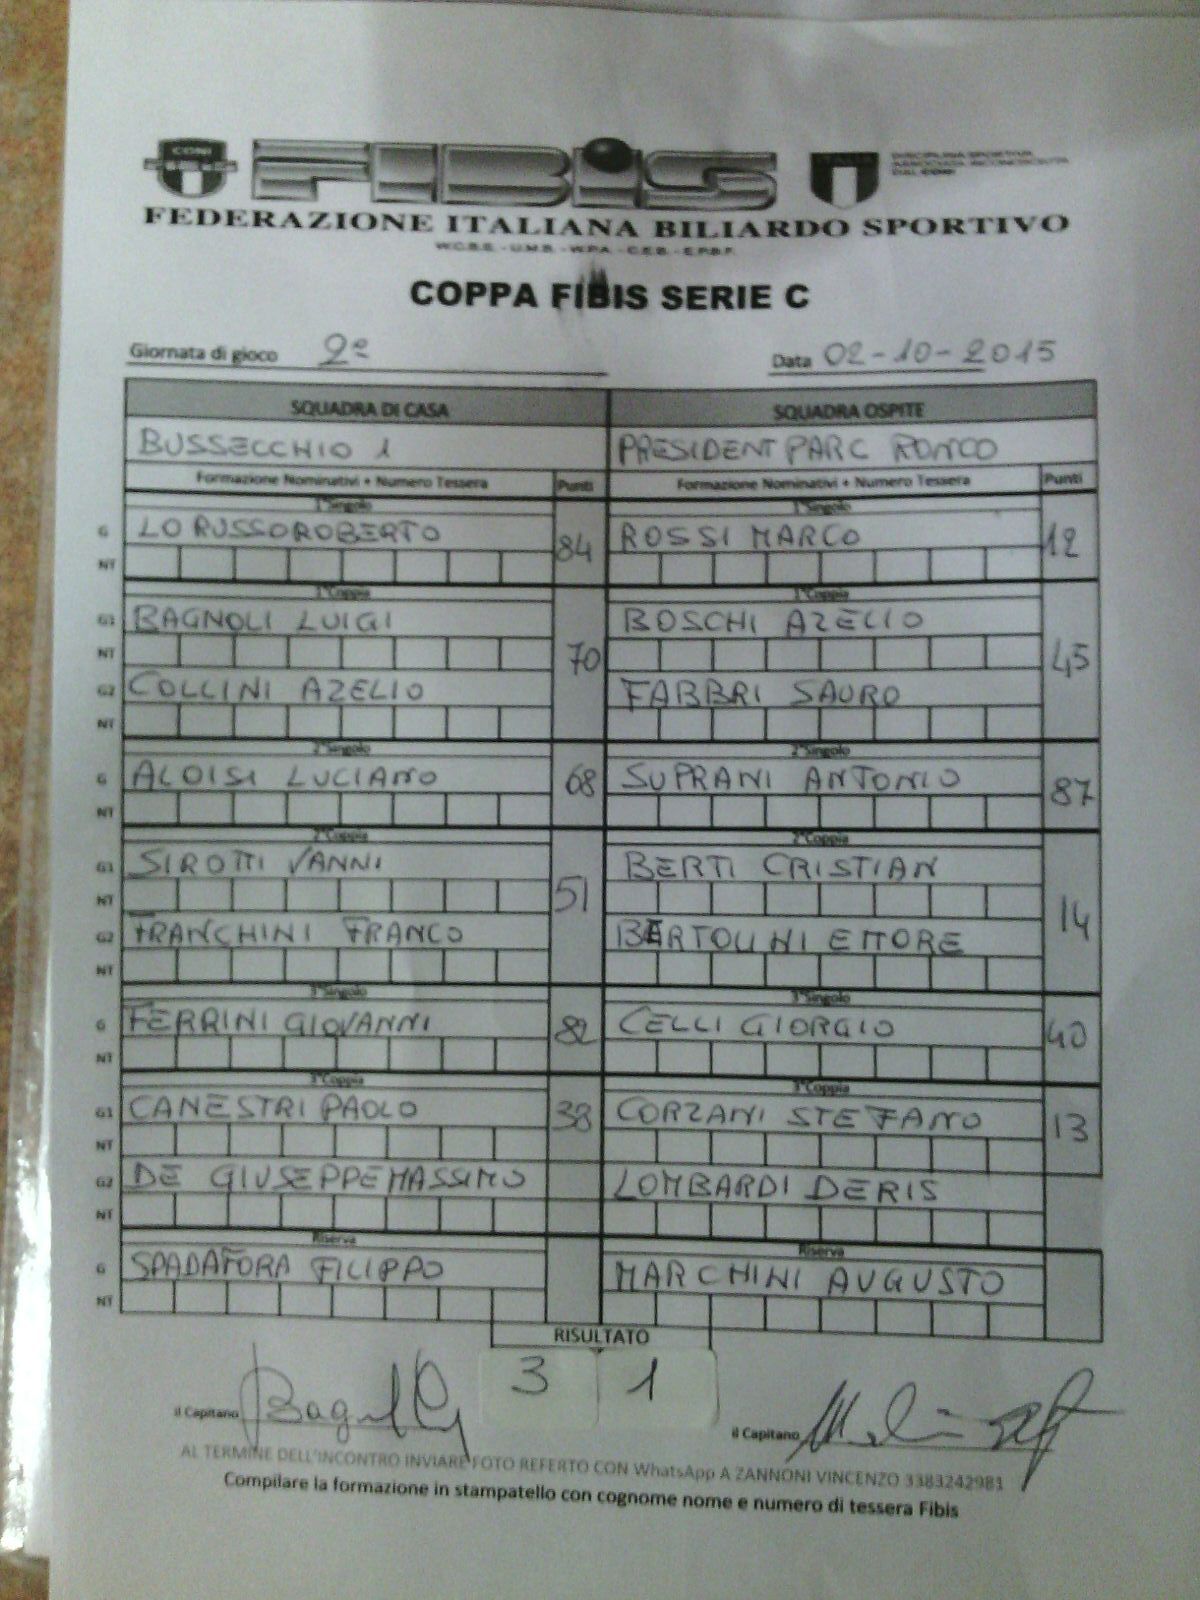 CONI
FIBIS
ITALIA
DISCIPLINA SPORTIVA
ASSOCIATA RICONOSCIUTA
DAL CONI
FEDERAZIONE ITALIANA BILIARDO SPORTIVO
W.C.B.S. - U.M.B. - W.P.A. - C.E.B. - E.P.B.F.
COPPA FIBIS SERIE C
Giornata di gioco 2ª Data 02-10-2015
SQUADRA DI CASA SQUADRA OSPITE
BUSSECCHIO 1 PRESIDENT PARC RONCO
Formazione Nominativi + Numero Tessera Punti Formazione Nominativi + Numero Tessera Punti
1°Singolo 1°Singolo
G LO RUSSO ROBERTO 84 ROSSI MARCO 12
NT
1°Coppia 1°Coppia
G1 BAGNOLI LUIGI BOSCHI AZELIO
NT 70 45
G2 COLLINI AZELIO FABBRI SAURO
NT
2°Singolo 2°Singolo
G ALOISI LUCIANO 68 SUPRANI ANTONIO 87
NT
2°Coppia 2°Coppia
G1 SIROTTI VANNI BERTI CRISTIAN
NT 51 14
G2 FRANCHINI FRANCO BERTOLINI ETTORE
NT
3°Singolo 3°Singolo
G FERRINI GIOVANNI 82 CELLI GIORGIO 40
NT
3°Coppia 3°Coppia
G1 CANESTRI PAOLO 38 CORZANI STEFANO 13
NT
G2 DE GIUSEPPE MASSIMO LOMBARDI DERIS
NT
Riserva Riserva
G SPADAFORA FILIPPO MARCHINI AUGUSTO
NT
RISULTATO
3 1
il Capitano il Capitano
AL TERMINE DELL'INCONTRO INVIARE FOTO REFERTO CON WhatsApp A ZANNONI VINCENZO 3383242981
Compilare la formazione in stampatello con cognome nome e numero di tessera Fibis